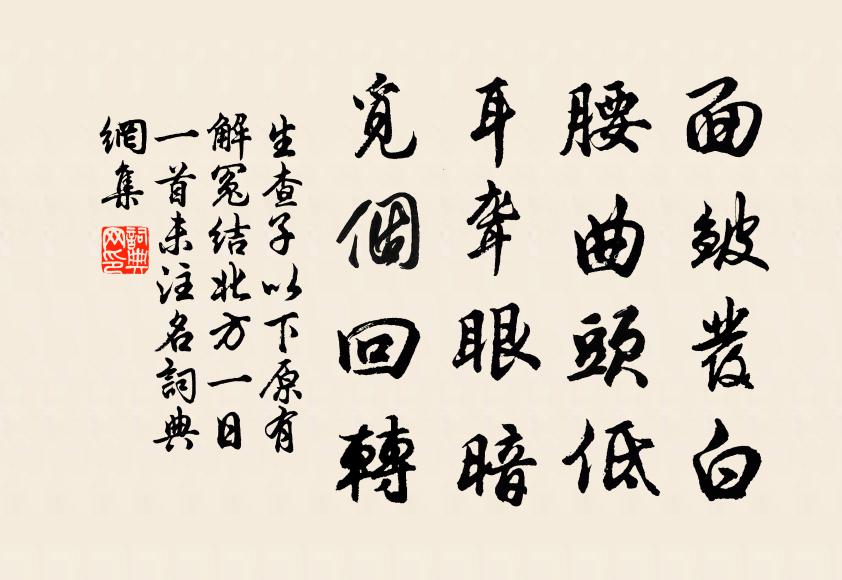 面皴發白
腰曲頭低
耳聋眼暗
覓個回轉
生查子以下原有
解冤結北方一日
一首未注名詞典
網集
詞典網印